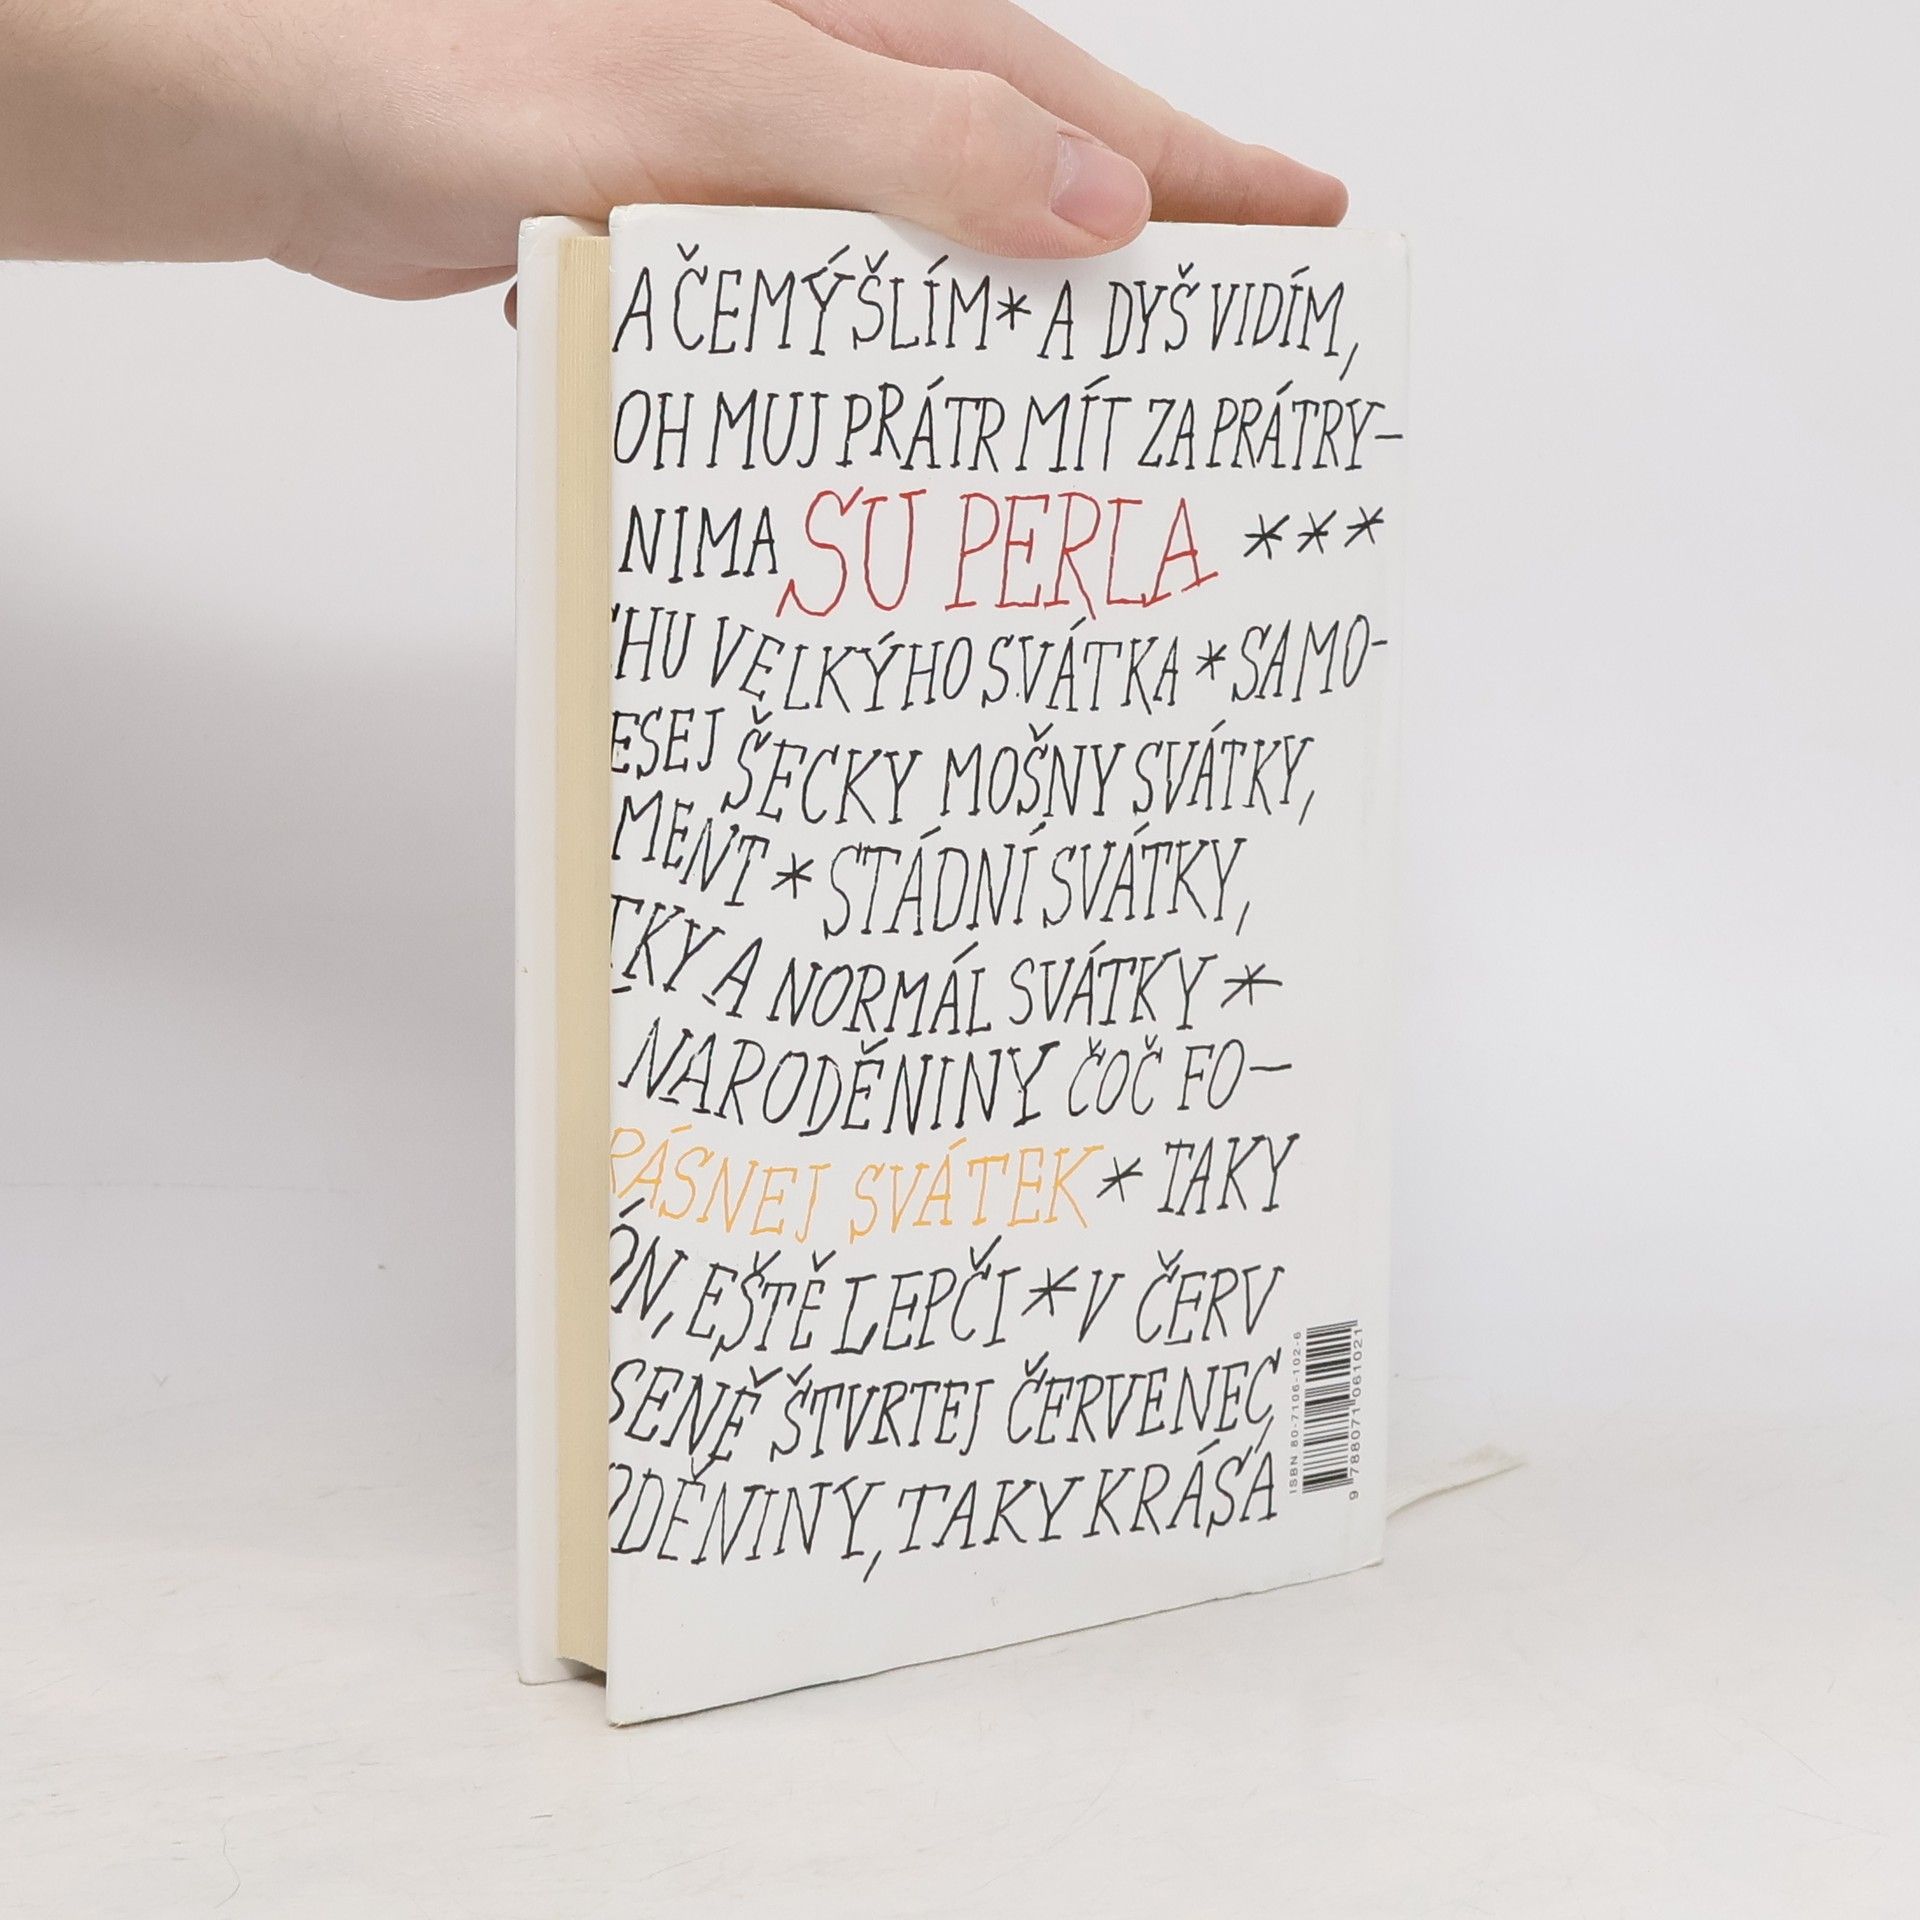 A ČEMÝŠLÍM * A DYŠ VIDÍM,
OH MUJ PRÁTR MÍT ZA PRÁTRY-
NIMA SU PERLA ***
HU VELKÝHO SVÁTKA * SAMO-
ESEJ ŠECKY MOŠNY SVÁTKY,
MENT * STÁDNÍ SVÁTKY,
TKY A NORMÁL SVÁTKY *
NARODĚNINY ČOČ FO-
RÁSNEJ SVÁTEK * TAKY
ÓN, EŠTĚ LEPČI * V ČERV
SENĚ ŠTVRTEJ ČERVENEC,
ODĚNINY, TAKY KRÁSA
ISBN 80-7106-102-6
9 788071 061021